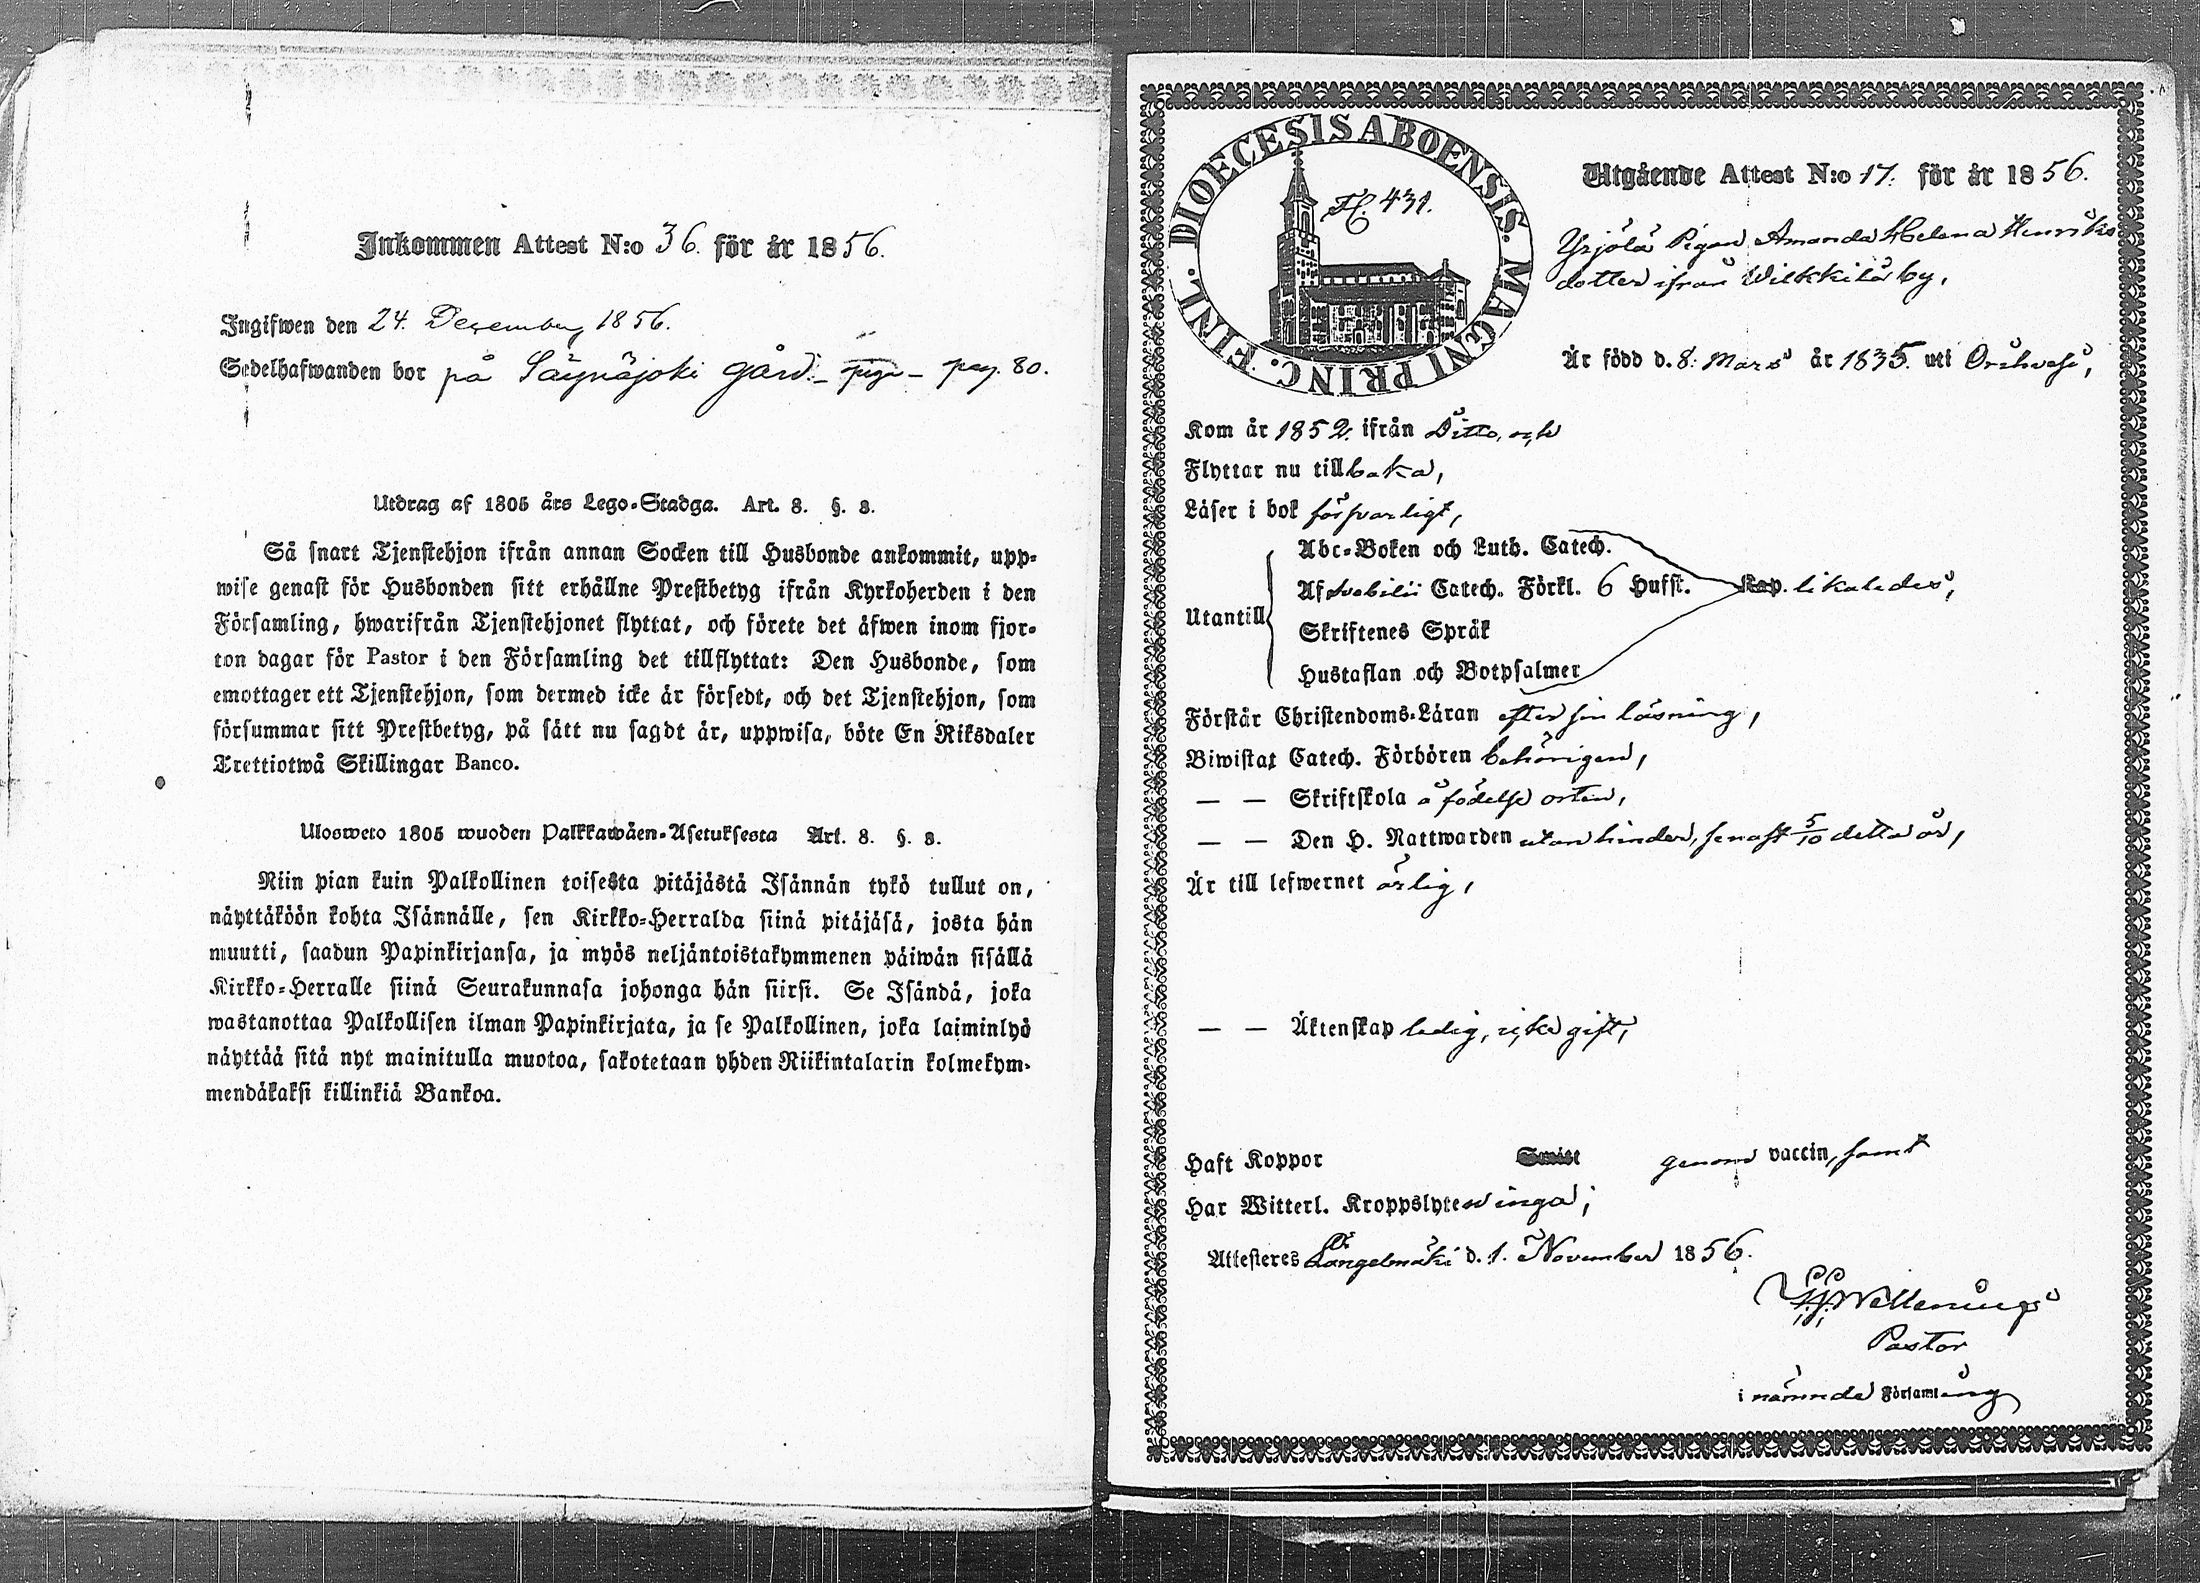 Inkommen Attest N:o 36. för år 1856.
Ingifwen den 24. December 1856.
Sedelhafwanden bor på Säynäjoki gård. – piga – pag. 80.
Utdrag af 1805 års Lego-Stadga. Art. 8. §. 8.
Så snart Tjenstehjon ifrån annan Socken till Husbonde ankommit, upp-
wise genast för Husbonden sitt erhållne Prestbetyg ifrån Kyrkoherden i den
Församling, hwarifrån Tjenstehjonet flyttat, och förete det äfwen inom fjor-
ton dagar för Pastor i den Församling det tillflyttat: Den Husbonde, som
emottager ett Tjenstehjon, som dermed icke är försedt, och det Tjenstehjon, som
försummar sitt Prestbetyg, på sätt nu sagdt är, uppwisa, böte En Riksdaler
Trettiotwå Skillingar Banco.
Ulosweto 1805 wuoden Palkkawäen-Asetuksesta Art. 8. §. 8.
Niin pian kuin Palkollinen toisesta pitäjästä Isännän tykö tullut on,
näyttäköön kohta Isännälle, sen Kirkko-Herralda siinä pitäjäsä, josta hän
muutti, saadun Papinkirjansa, ja myös neljäntoistakymmenen päiwän sisällä
Kirkko-Herralle siinä Seurakunnasa johonga hän siirsi. Se Isändä, joka
wastanottaa Palkollisen ilman Papinkirjata, ja se Palkollinen, joka laiminlyö
näyttää sitä nyt mainitulla muotoa, sakotetaan yhden Riikintalarin kolmekym-
mendäkaksi killinkiä Bankoa.
DIOECESIS ABOENSIS. MAGNI PRINC. FINL.
431.
Utgående Attest N:o 17. för år 1856.
Yrjölä Pigan Amanda Helena Henriks
dotter ifrån Wilkkilä by,
Är född d. 8. Mars år 1835. uti Orihvesi,
Kom år 1852. ifrån Ditto, och
Flyttar nu tillbaka,
Läser i bok försvarligt,
Abc-Boken och Luth. Catech.
Af Svebilii Catech. Förkl. 6 Hufst. Kap. likaledes,
Utantill
Skriftenes Språk
Hustaflan och Botpsalmer
Förstår Christendoms-Läran efter sin läsning,
Biwistat Catech. Förhören behörigen,
— — Skriftskola å födelse orten,
— — Den H. Nattwarden utan hinder, senast 5/10 detta år,
Är till lefwernet ärlig,
— — Äktenskap ledig, icke gift,
Haft Koppor genom vaccin, samt
Har Witterl. Kroppslyten inga;
Attesteras Längelmäki d. 1. November 1856.
Pastor
i nämnde Församling